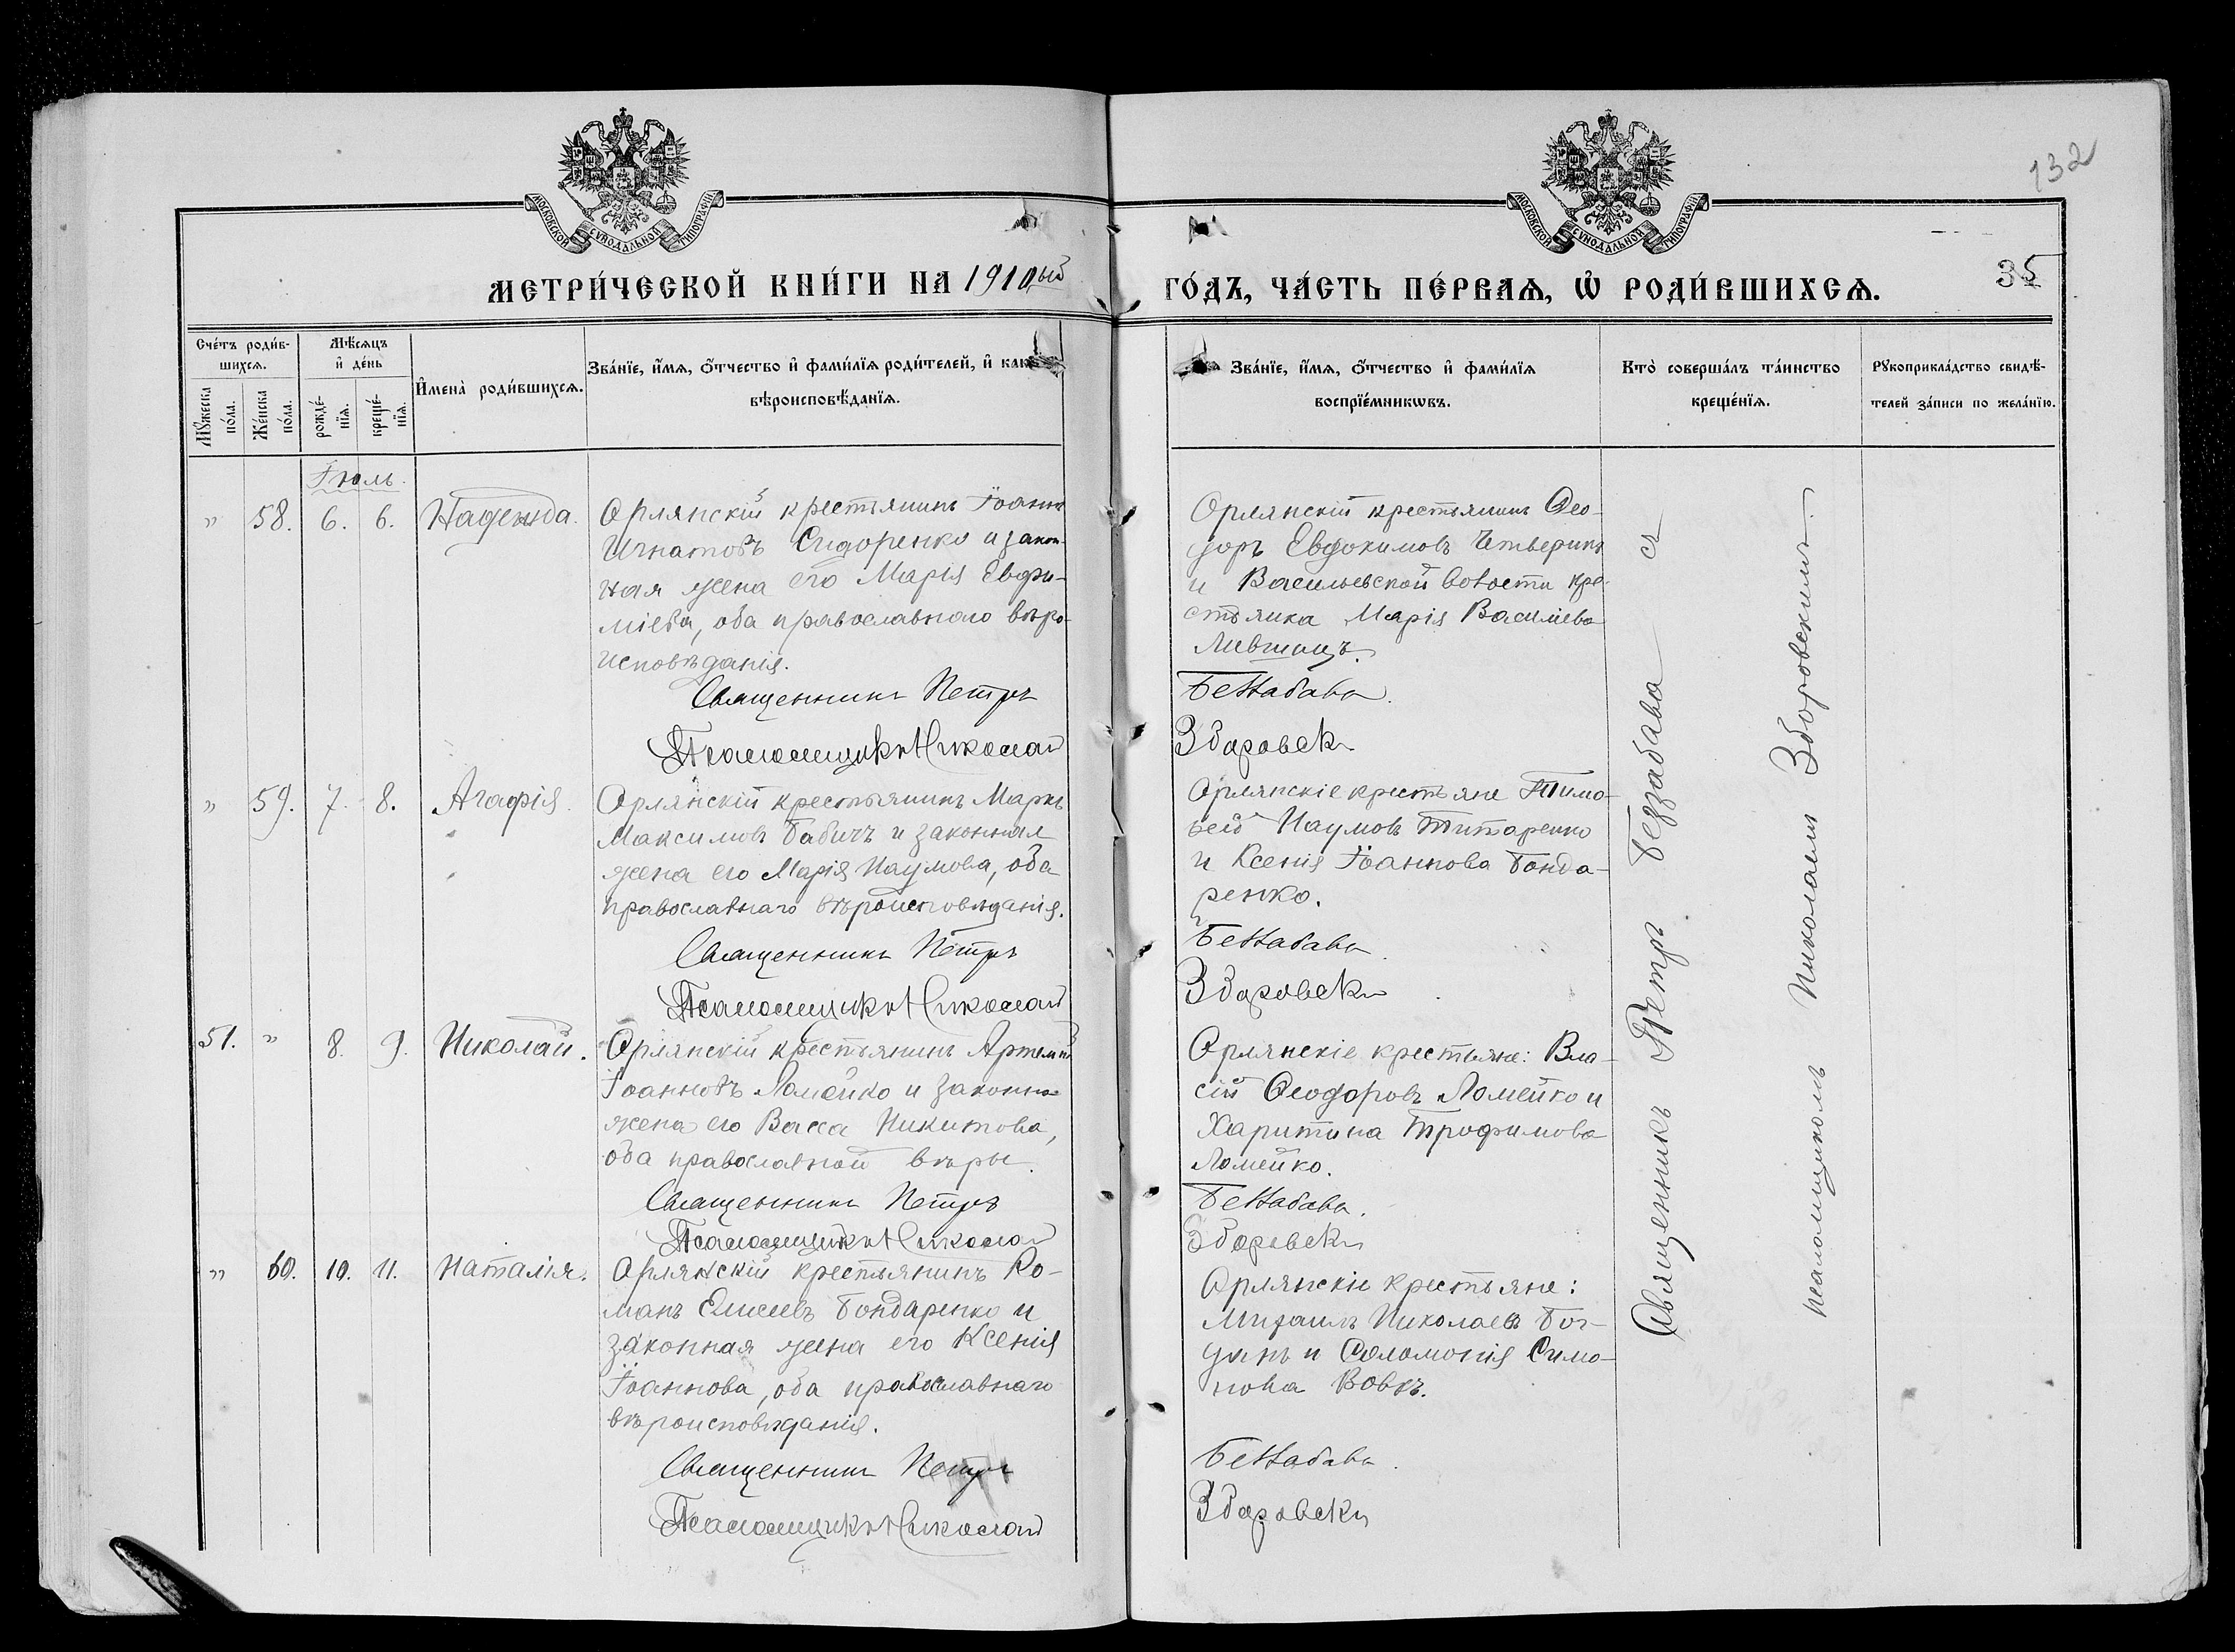 132
МОСКОВСКОЙ СѴНОДАЛЬНОЙ ТИПОГРАФІИ
МОСКОВСКОЙ СѴНОДАЛЬНОЙ ТИПОГРАФІИ
МЕТРИ́ЧЕСКОЙ КНИ́ГИ НА 1910ый
ГО́ДЪ, ЧА́СТЬ ПЕ́РВАѦ, Ѡ РОДИ́ВШИХСѦ.
35
Сче́тъ роди́вшихсѧ.
Мꙋ́жеска по́ла.
Же́нска по́ла.
Мѣ́сѧцъ и де́нь
рожде́нїѧ.
креще́нїѧ.
И҆мена̀ роди́вшихсѧ.
Зва́нїе, и҆́мѧ, ѻ҆́тчество и҆ фами́лїѧ роди́телей, и҆ како
вѣроисповѣ́данїѧ.
Зва́нїе, и҆́мѧ, ѻ҆́тчество и҆ фами́лїѧ
воспрїе́мникѡвъ.
Кто̀ соверша́лъ та́инство
креще́нїѧ.
Рꙋкоприкла́дство свидѣ́-
телей за́писи по жела́нїю.
Іюль.
" 58. 6. 6. Надежда.
Орлянскій крестьянинъ Іоаннъ
Игнатовъ Сидоренко и закон-
ная жена его Марія Евфи-
міева, оба православнаго вѣро-
исповѣданія.
Священникъ Петръ
Псаломщикъ Николай
Орлянскій крестьянинъ Ѳео-
доръ Евдокимовъ Четверикъ
и Васильевской волости кре-
стьянка Марія Василіева
Лившицъ.
Беззабава.
Зборовскі
" 59. 7. 8. Агафія.
Орлянскій крестьянинъ Маркъ
Максимовъ Бабичъ и законная
жена его Марія Наумова, оба
православнаго вѣроисповѣданія.
Священникъ Петръ
Псаломщикъ Николай
Орлянскіе крестьяне Тимо-
ѳей Наумовъ Титаренко
и Ксенія Іоаннова Бонда-
ренко.
Беззабава.
Зборовскі
51. " 8. 9. Николай.
Орлянскій крестьянинъ Артемій
Іоанновъ Ломейко и законная
жена его Васса Никитова,
оба православной вѣры.
Священникъ Петръ
Псаломщикъ Николай
Орлянскіе крестьяне: Вла-
сій Ѳеодоровъ Ломейко и
Харитина Трофимова
Ломейко.
Беззабава.
Зборовскі
" 60. 10. 11. Наталія.
Орлянскій крестьянинъ Ро-
манъ Елисеевъ Бондаренко и
законная жена его Ксенія
Іоаннова, оба православнаго
вѣроисповѣданія.
Священникъ Петръ
Псаломщикъ Николай
Орлянскіе крестьяне:
Михаилъ Николаевъ Бог-
данъ и Соломонія Симо-
нова Вовкъ.
Беззабава.
Зборовскі
Священникъ Петръ Беззабава съ
псаломщикомъ Николаемъ Зборовскимъ.